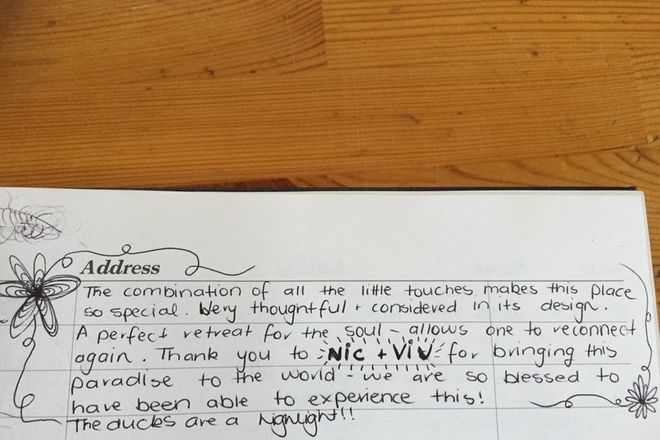 Address
The combination of all the little touches makes this place
so special. Very thoughtful + considered in its design.
A perfect retreat for the soul - allows one to reconnect
again. Thank you to Nic + Viv for bringing this
paradise to the world - we are so blessed to
have been able to experience this!
The ducks are a highlight!!